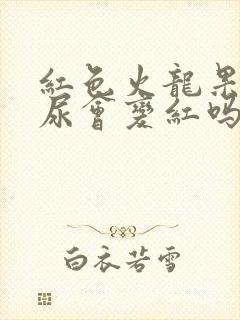 紅色火龍果
尿會變紅嗎
白衣若雪